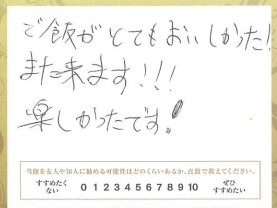 ご飯がとてもおいしかった!
また来ます!!!
楽しかったです!
当館を友人や知人に勧める可能性はどのくらいあるか、点数で教えてください。
すすめたく 0 1 2 3 4 5 6 7 8 9 10 ぜひ
ない すすめたい